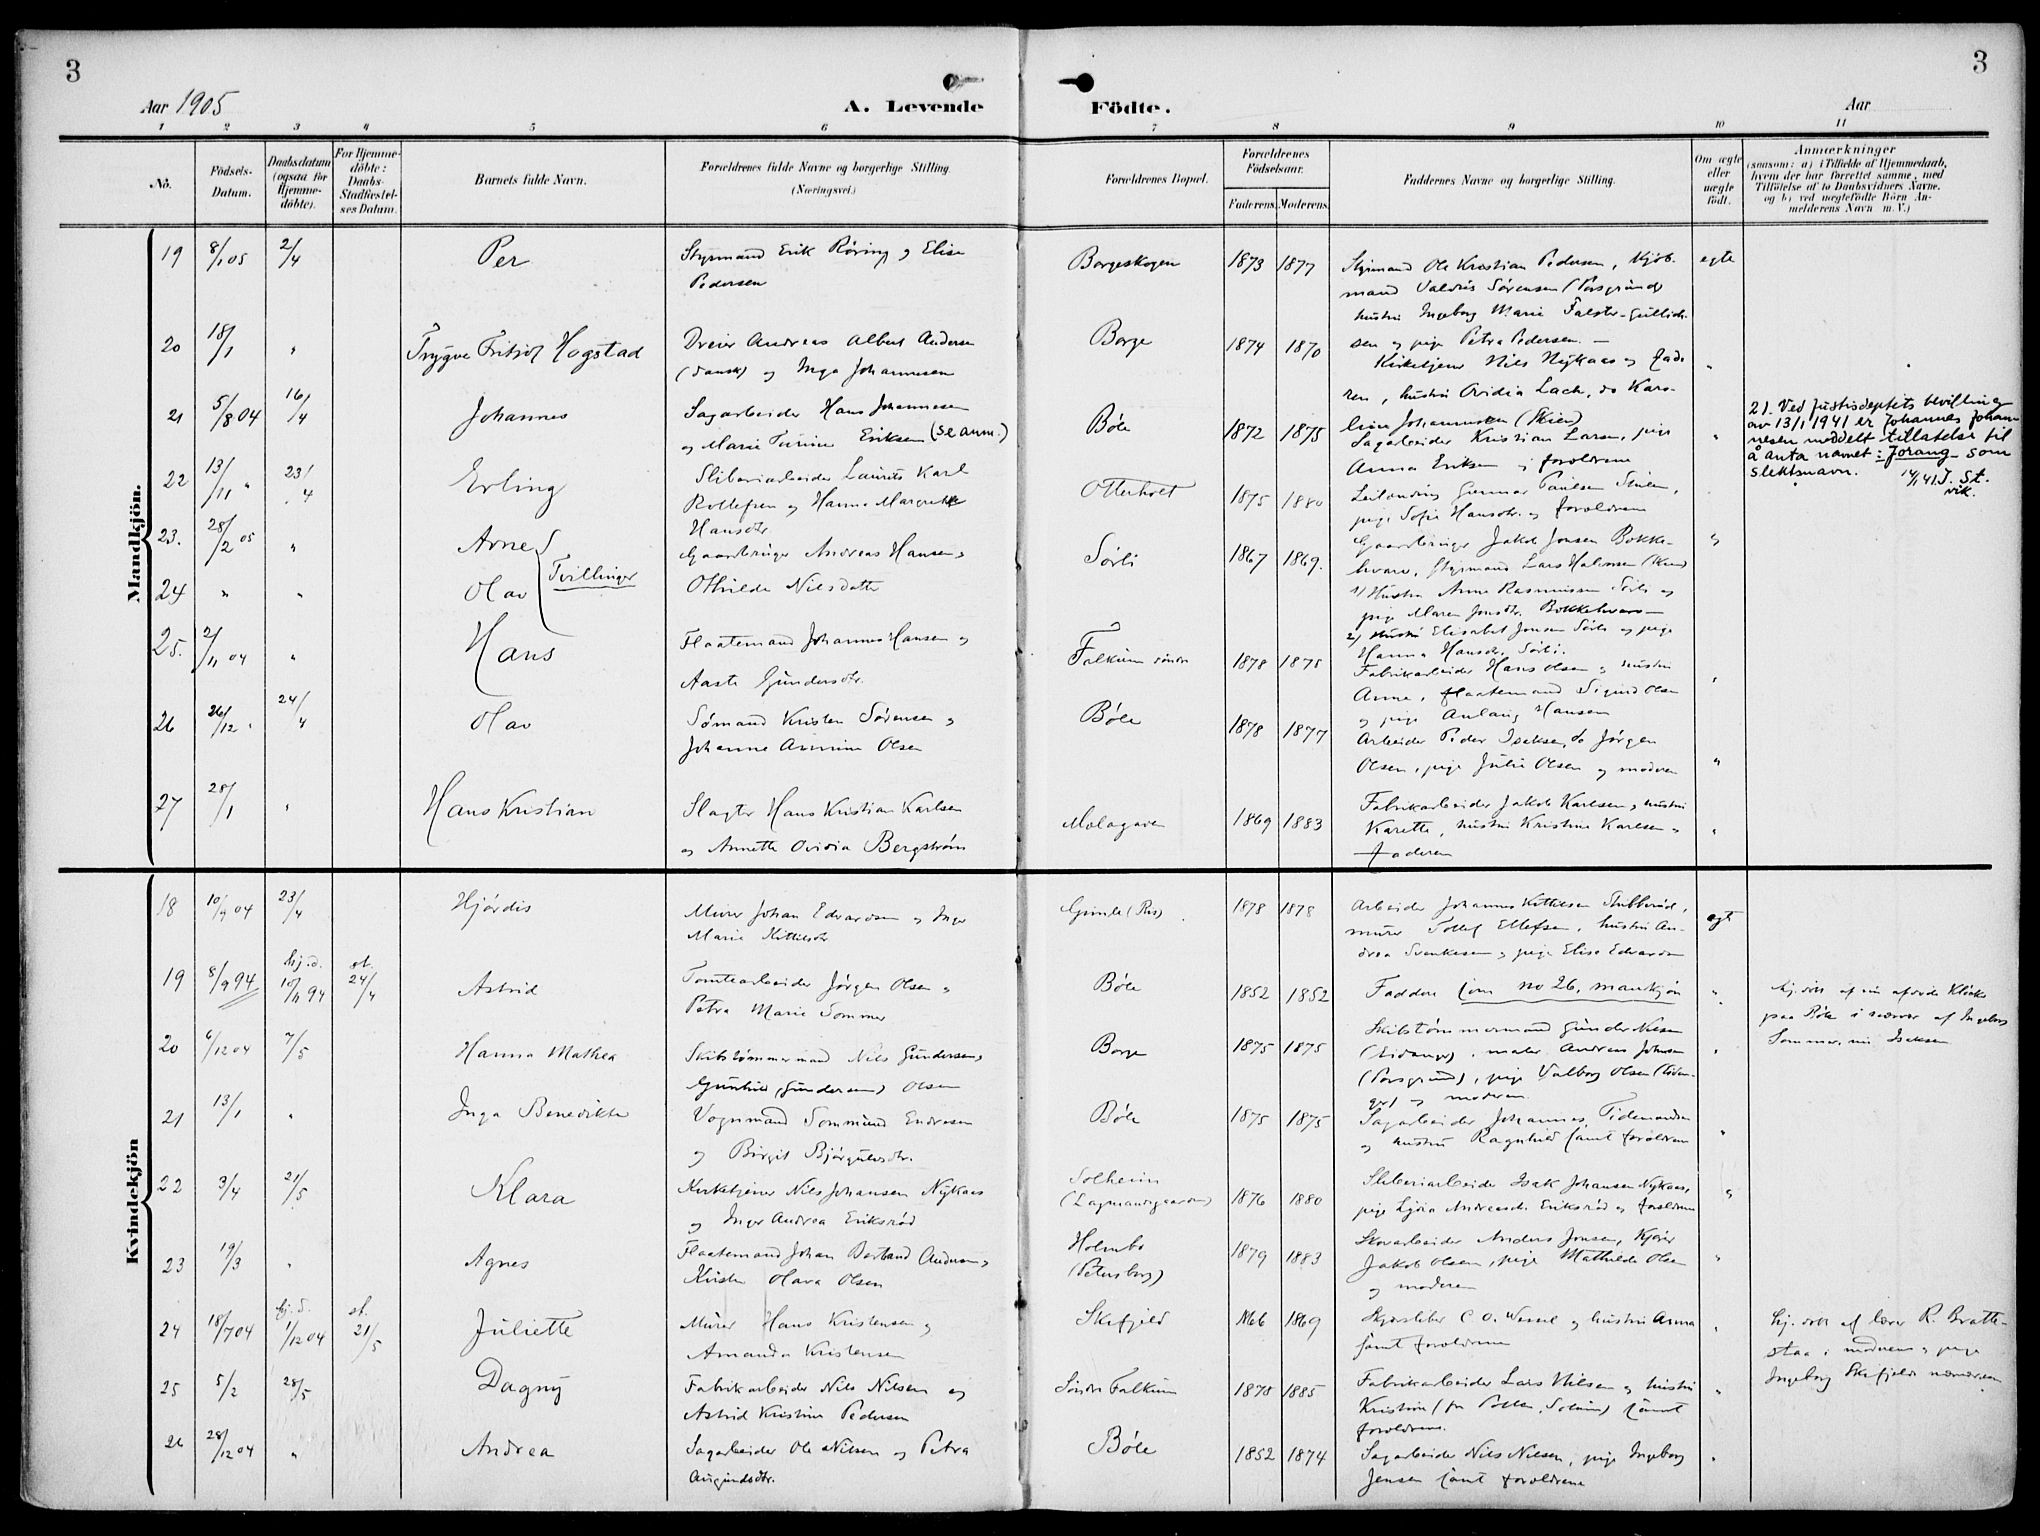 3
3
Aar 1905
A. Levende
Födte.
Aar
1 2 3 4 5 6 7 8 9 10 11
No.
Födsels-
Datum.
Daabsdatum
(ogsaa for
Hjemme-
döbte).
For Hjemme-
döbte:
Daabs-
Stadfæstel-
ses Datum.
Barnets fulde Navn.
Forældrenes fulde Navne og borgerlige Stilling.
(Næringsvei.)
Forældrenes Bopæl.
Forældrenes
Födselsaar.
Faderens. Moderens.
Faddernes Navne og borgerlige Stilling.
Om ægte
eller
uægte
födt.
Anmærkninger
(saasom: a) i Tilfælde af Hjemmedaab,
hvem der har forrettet samme, med
Tilföielse af to Daabsvidners Navne.
og b) ved uægtefödte Börn An-
melderens Navn m. V.)
Mandkjön.
19 8/1 05 2/4 Per Styrmand Erik Röring og Elise
Pedersen
Borgeskogen 1873 1877 Styrmand Ole Kristian Pedersen, Kjöb-
mand Valdris Sörensen (Porsgrund)
hustru Ingeborg Marie Falster-Gullich-
sen og pige Petra Pedersen. egte
20 18/1 " Trygve Fritjof Hogstad Dreier Andreas Albert Andersen
(dansk) og Inga Johannesen
Borge 1874 1870 Kirketjener Nils Nykaas og fade-
ren, hustru Ovidia Lach, do Karo-
line Johannesen (Skien) "
21 5/8 04 16/4 Johannes Sagarbeider Hans Johannesen
og Marie Turine Eriksen (se anm.)
Böle 1872 1875 Sagarbeider Kristian Larsen, pige
Anna Eriksen og forældrene "
21. Ved Justisdeptets bevilling
av 13/1 1941 er Johannes Johan-
nesen meddelt tillatelse til
å anta navnet: Jorang som
slektsnavn. 14/1 41. J. St.
vik.
22 13/11 " 23/4 Erling Sliberiarbeider Laurits Karl
Rollefsen og Hanna Margrethe
Hansdtr
Otterholt 1875 1880 Gunnar Paulsen
pige Sofie Hansdtr. og forældrene
23. 28/2 05 " Arne Tvillinger Gaardbruger Andreas Hansen og
Othilde Nilsdatter
Sörli 1867 1869. Gaardbruger Jakob Jonsen Bokke-
hvare, Styrmand Lars Halvorsen (Skien)
24 " " Olav
1/ Hustru Anne Rasmussen Sörli og
pige Maren Jonsdtr. Bokkehvare
2/ Hustru Elisabet Jonsen Sörli og pige
Hanna Hansdtr. Sörli.
25. 2/11 04 " Hans Flaatemand Johannes Hansen og
Aaste Gundersdtr.
Falkum söndre 1878 1875 Fabrikarbeider Hans Olsen og hustru
Anne, flaatemand Sigurd Olsen
og pige Aslaug Hansen
26 26/12 " 24/4 Olav Sömand Kristen Sörensen og
Johanne Olsen
Böle 1878 1877 Arbeider Peder Isaksen, do Jörgen
Olsen, pige Julie Olsen og moderen "
27 28/1 " Hans Kristian Slagter Hans Kristian Karlsen
og Annette Ovidia Bergström
1869 1883 Fabrikarbeider Jakob Karlsen og hustru
Karette, hustru Kristine Karlsen og
faderen "
Kvindekjön
18 10/9 04 23/4 Hjördis Murer Johan Edvardsen og Inger
Marie Kittilsdtr
Grinde (Ris) 1878 1878 Arbeider Johannes Kittilsen Stubberöd,
murer Tollef Ellefsen, hustru An-
drea Svenkesen og pige Elise Edvardsen ægt
19 8/9 94 hj.d. 10/11 94 st. 24/4 Astrid Tomtearbeider Jörgen Olsen og
Petra Marie Sommer
Böle 1852 1852 Faddere som no 26, mankjön "
hj. döbt af
paa Böle i nærvær af Ingeborg
Sommer, Isaksen
20 6/12 04 7/5 Hanna Mathea Skibstömmermand Nils Gundersen og
Gunhild (Gundersen) Olsen
Borge 1875 1875 Skibstömmermand Gunder Nilsen
(Eidanger), maler Andreas Johnsen
(Porsgrund), pige Valborg Olsen (Eidan-
ger) og moderen "
21 13/1 " Inga Benedikte Vognmand Sommund Endresen
og Birgit Björgulvsdtr.
Böle 1875 1875 Sagarbeider Johannes Tidemandsen
og hustru Ragnhild samt forældrene "
22 3/4 21/5 Klara Kirketjener Nils Johansen Nykaas
og Inger Andrea Eriksröd
Solheim
(Lagmandsgaarden) 1876 1880 Sliberiarbeider Isak Johansen Nykaas,
pige Lydia Andreasdtr. Eriksröd og forældrene "
23 19/3 " Agnes Flaatemand Johan Bertrand Andersen og
Kirsten Olava Olsen
Holmbo
(Petersborg) 1879 1883 Skovarbeider Anders Jonsen, Kjörer
Jakob Olsen, pige Mathilde Olsen
og moderen "
24 18/7 04 hj.d. 1/12 04 st. 21/5 Juliette Murer Hans Kristensen og
Amanda Kristensen
Skifjeld 1866 1869 Skjærsliber C. O. Wessel og hustru Anna
samt forældrene "
hj. döbt af lærer R. Bratte-
staa i moderens og pige
Ingeborg Skifjelds nærværelse
25 5/2 28/5 Dagny Fabrikarbeider Nils Nilsen og
Astrid Kristine Pedersen
Söndre Falkum 1878 1885 Fabrikarbeider Lars Nilsen og hustru
Kristine samt
forældrene. "
26 28/12 04 " Andrea Sagarbeider Ole Nilsen og Petra
Augundsdtr.
Böle 1852 1874 Sagarbeider Nils Nilsen, pige Ingeborg
Jensen samt forældrene "